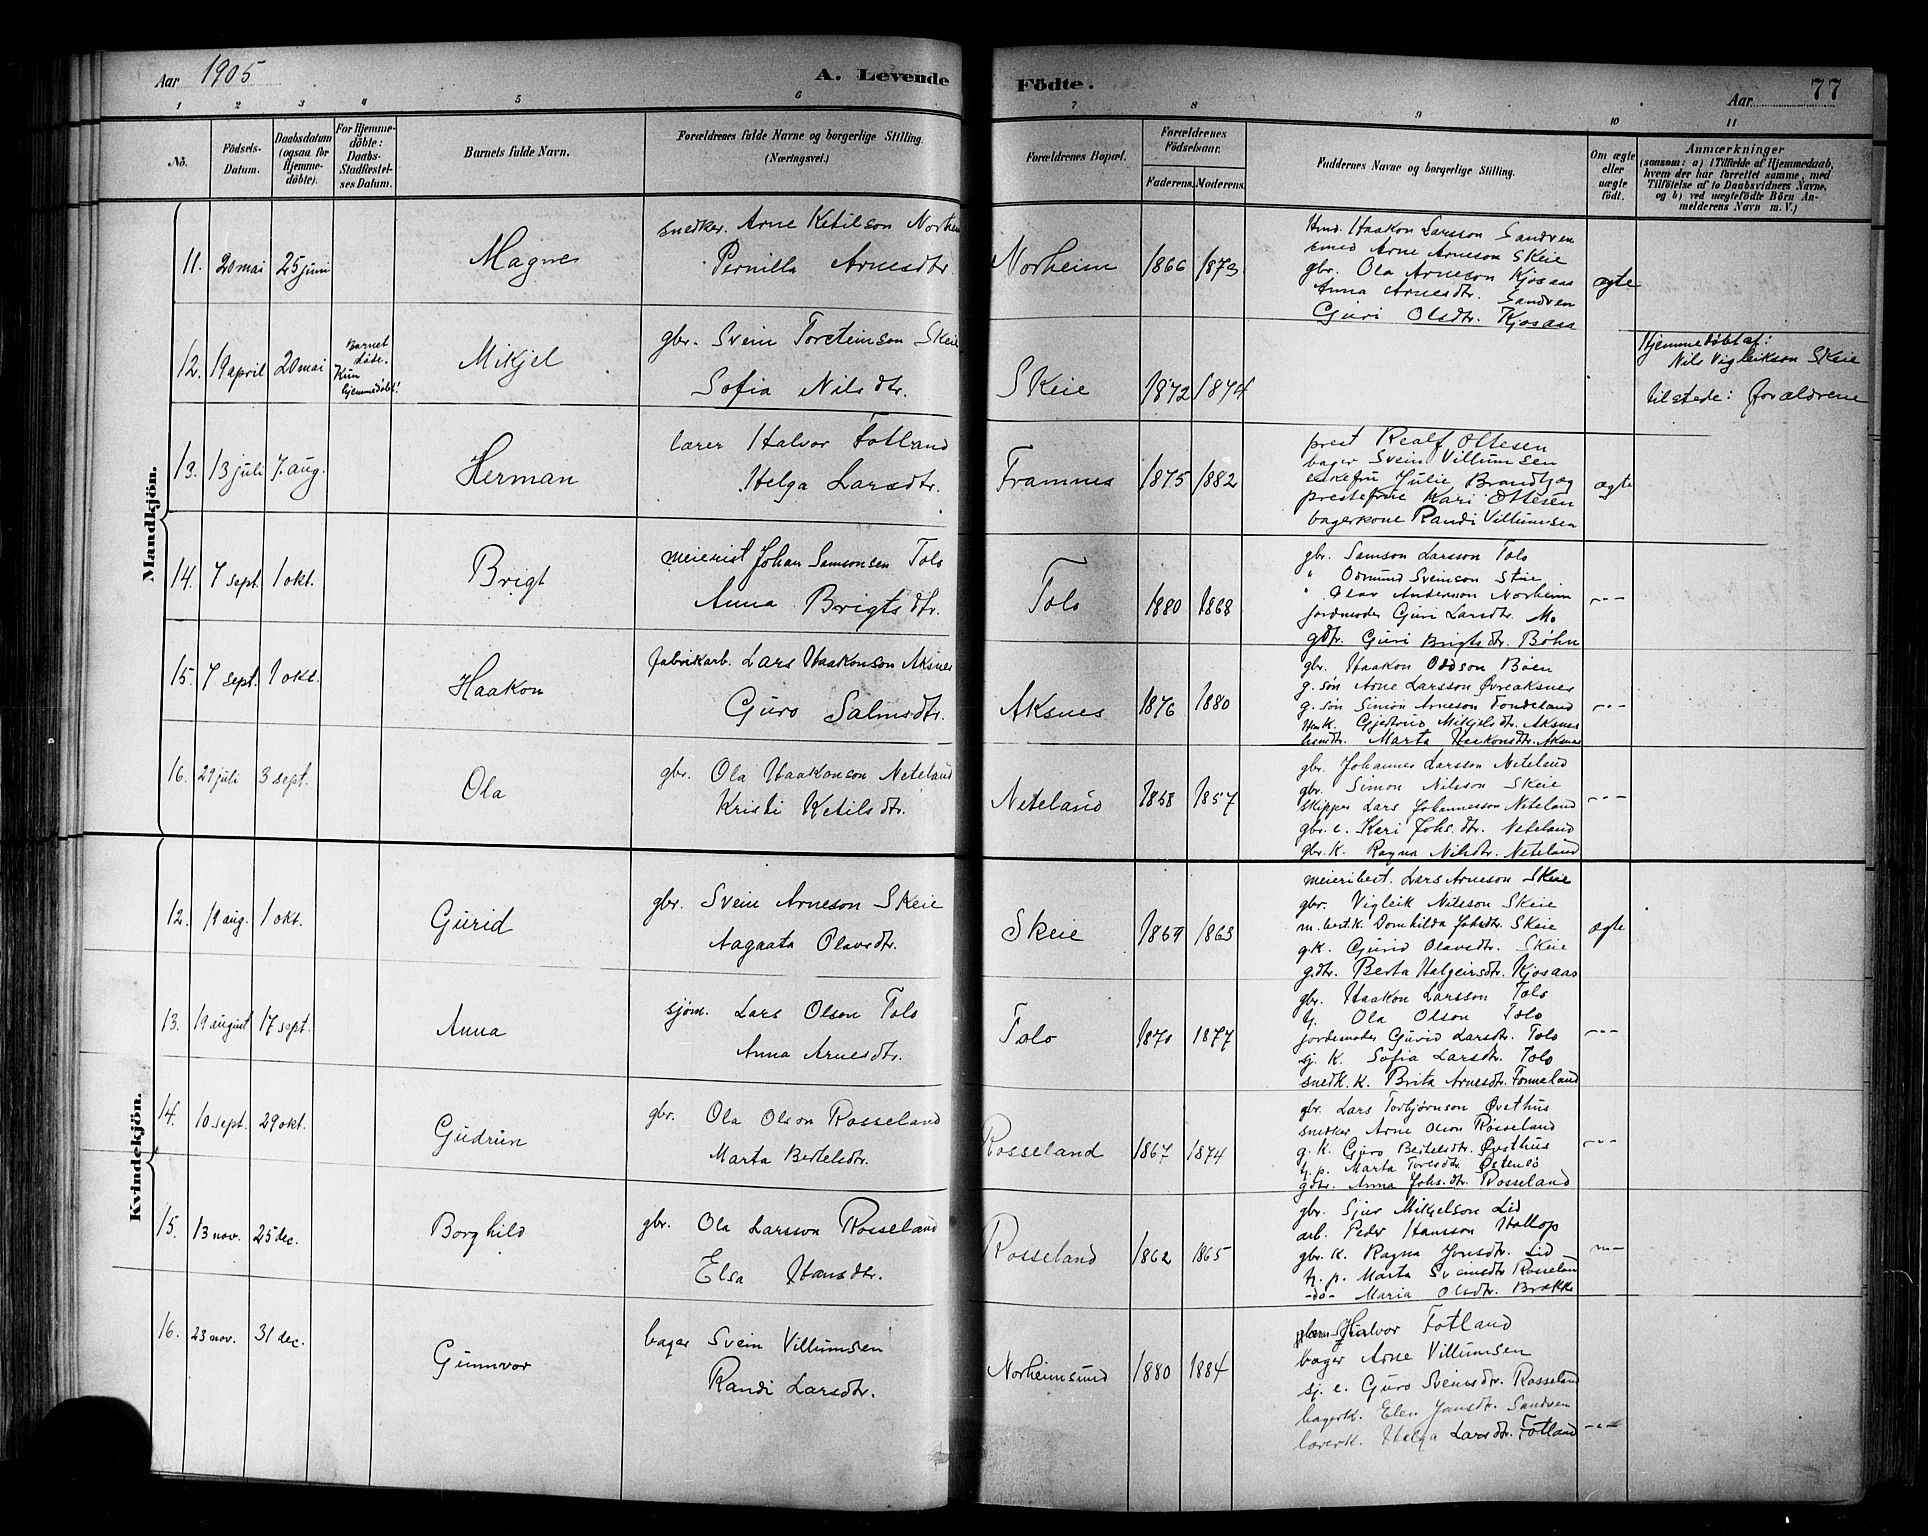 Aar 1905
A. Levende Födte.
Aar 77
1 2 3 4 5 6 7 8 9 10 11
No.
Födsels-Datum.
Daabsdatum (ogsaa for Hjemme-döbte).
For Hjemme-döbte: Daabs-Stadfæstel-ses Datum.
Barnets fulde Navn.
Forældrenes fulde Navne og borgerlige Stilling.
(Næringsvei.)
Forældrenes Bopæl.
Forældrenes Födselsaar.
Faderens. Moderens.
Faddernes Navne og borgerlige Stilling.
Om ægte eller uægte födt.
Anmærkninger
(saasom: a) i Tilfælde af Hjemmedaab,
hvem der har forrettet samme, med
Tilföielse af to Daabsvidners Navne,
og b) ved uægtefödte Börn An-
melderens Navn m. V.)
Mandkjön.
11. 20 mai 25 juni Magnes
snedker. Arne Ketilson Norheim
Pernilla Arnesdtr.
Norheim 1866 1873
Hmd. Haakon Larsson Sandven
smed Arne Arneson Skeie
gbr. Ola Arneson Kjosaas
Anna Arnesdtr. Sandven
Guri Olsdtr. Kjosaas
ægte
12. 19 april 20 mai
Barnet
døde.
Kun
hjemmedøbt!
Mikjel
gbr. Svein Torsteinson Skeie
Sofia Nilsdtr.
Skeie 1872 1874
Hjemmedøbt af:
Nils Vigleikson Skeie
tilstede: forældrene
13. 13 juli 7. aug. Herman
lærer Halvor Fotland
Helga Larsdtr.
Framnes 1875 1882
prest Realf Ottesen
bager Svein Villumsen
enkefru Julie
prestefrue Kari Ottesen
bagerkone Randi Villumsen
ægte
14. 7 sept. 1 okt. Brigt
meierist Johan Samsonsen Tolo
Anna Brigtsdtr.
Tolo 1880 1868
gbr. Samson Larsson Tolo
" Odmund Sveinson Skeie
" Olav Anderson Norheim
jordmoder Guri Larsdtr. Mo
gdtr. Guri Brigtsdtr. Bøhn
-"-
15. 7 sept. 1 okt. Haakon
fabrikarb. Lars Haakonson Aksnes
Guro Salmsdtr.
Aksnes 1876 1880
gbr. Haakon Oddson Boen
g. søn Arne Larsson Øvreaksnes
g. søn Simon Arneson Tondeland
Hmk. Gjertrud Mikjelsdtr. Aksnes
Marta Haakonsdtr. Aksnes
-"-
16. 29 juli 3 sept. Ola
gbr. Ola Haakonson Neteland
Kristi Ketilsdtr.
Neteland 1858 1857
gbr. Johannes Larsson Neteland
gbr. Simon Nilsson Skeie
skipper Lars Johannesson Neteland
gbr. e. Kari Johs.dtr. Neteland
gbr. k. Ragna Nilsdtr. Neteland
-"-
Kvindekjön.
12. 19 aug. 1 okt. Gurid
gbr. Svein Arneson Skeie
Aagaata Olavsdtr.
Skeie 1869 1863
meieribest. Lars Arneson Skeie
gbr. Vigleik Nilsson Skeie
m. best. k. Domhilda Johsdtr. Skeie
g.k. Gurid Olavsdtr. Skeie
gdtr. Berta Halgeirsdtr. Kjosaas
ægte
13. 19 august 17 sept. Anna
sjøm. Lars Olson Tolo
Anna Arnesdtr.
Tolo 1870 1877
gbr. Haakon Larsson Tolo
Ola Olson Tolo
jordemoder Gurid Larsdtr. Tolo
sj. k. Sofia Larsdtr. Tolo
snedk. k. Brita Arnesdtr. Tonneland
-"-
14. 10 sept. 29 okt. Gudrun
gbr. Ola Olson Rosseland
Marta Bertelsdtr.
Rosseland 1867 1874
gbr. Lars Torbjørnson Øvsthus
snedker Arne Olson Rosseland
g. k. Guro Bertelsdtr. Øvsthus
t. p. Marta Toresdtr. Østensø
gdtr. Anna Johs.dtr. Rosseland
-"-
15. 13 nov. 25 dec. Borghild
gbr. Ola Larsson Rosseland
Elsa Hansdtr.
Rosseland 1862 1865
gbr. Sjur Mikjelson Lid
arb. Peder Hansson Hallop
gbr. k. Ragna Jonsdtr. Lid
t. p. Marta Sveinsdtr. Rosseland
-do- Maria Olsdtr. Brakke
-"-
16. 23 nov. 31 dec. Gunnvor
bager Svein Villumsen
Randi Larsdtr.
Norheimsund 1880 1884
Halvor Fotland
bager Arne Villumsen
sj. e. Guro Svensdtr. Rosseland
bagerk. Elen Jansdtr. Sandven
lærerk. Helga Larsdtr. Fotland
-"-